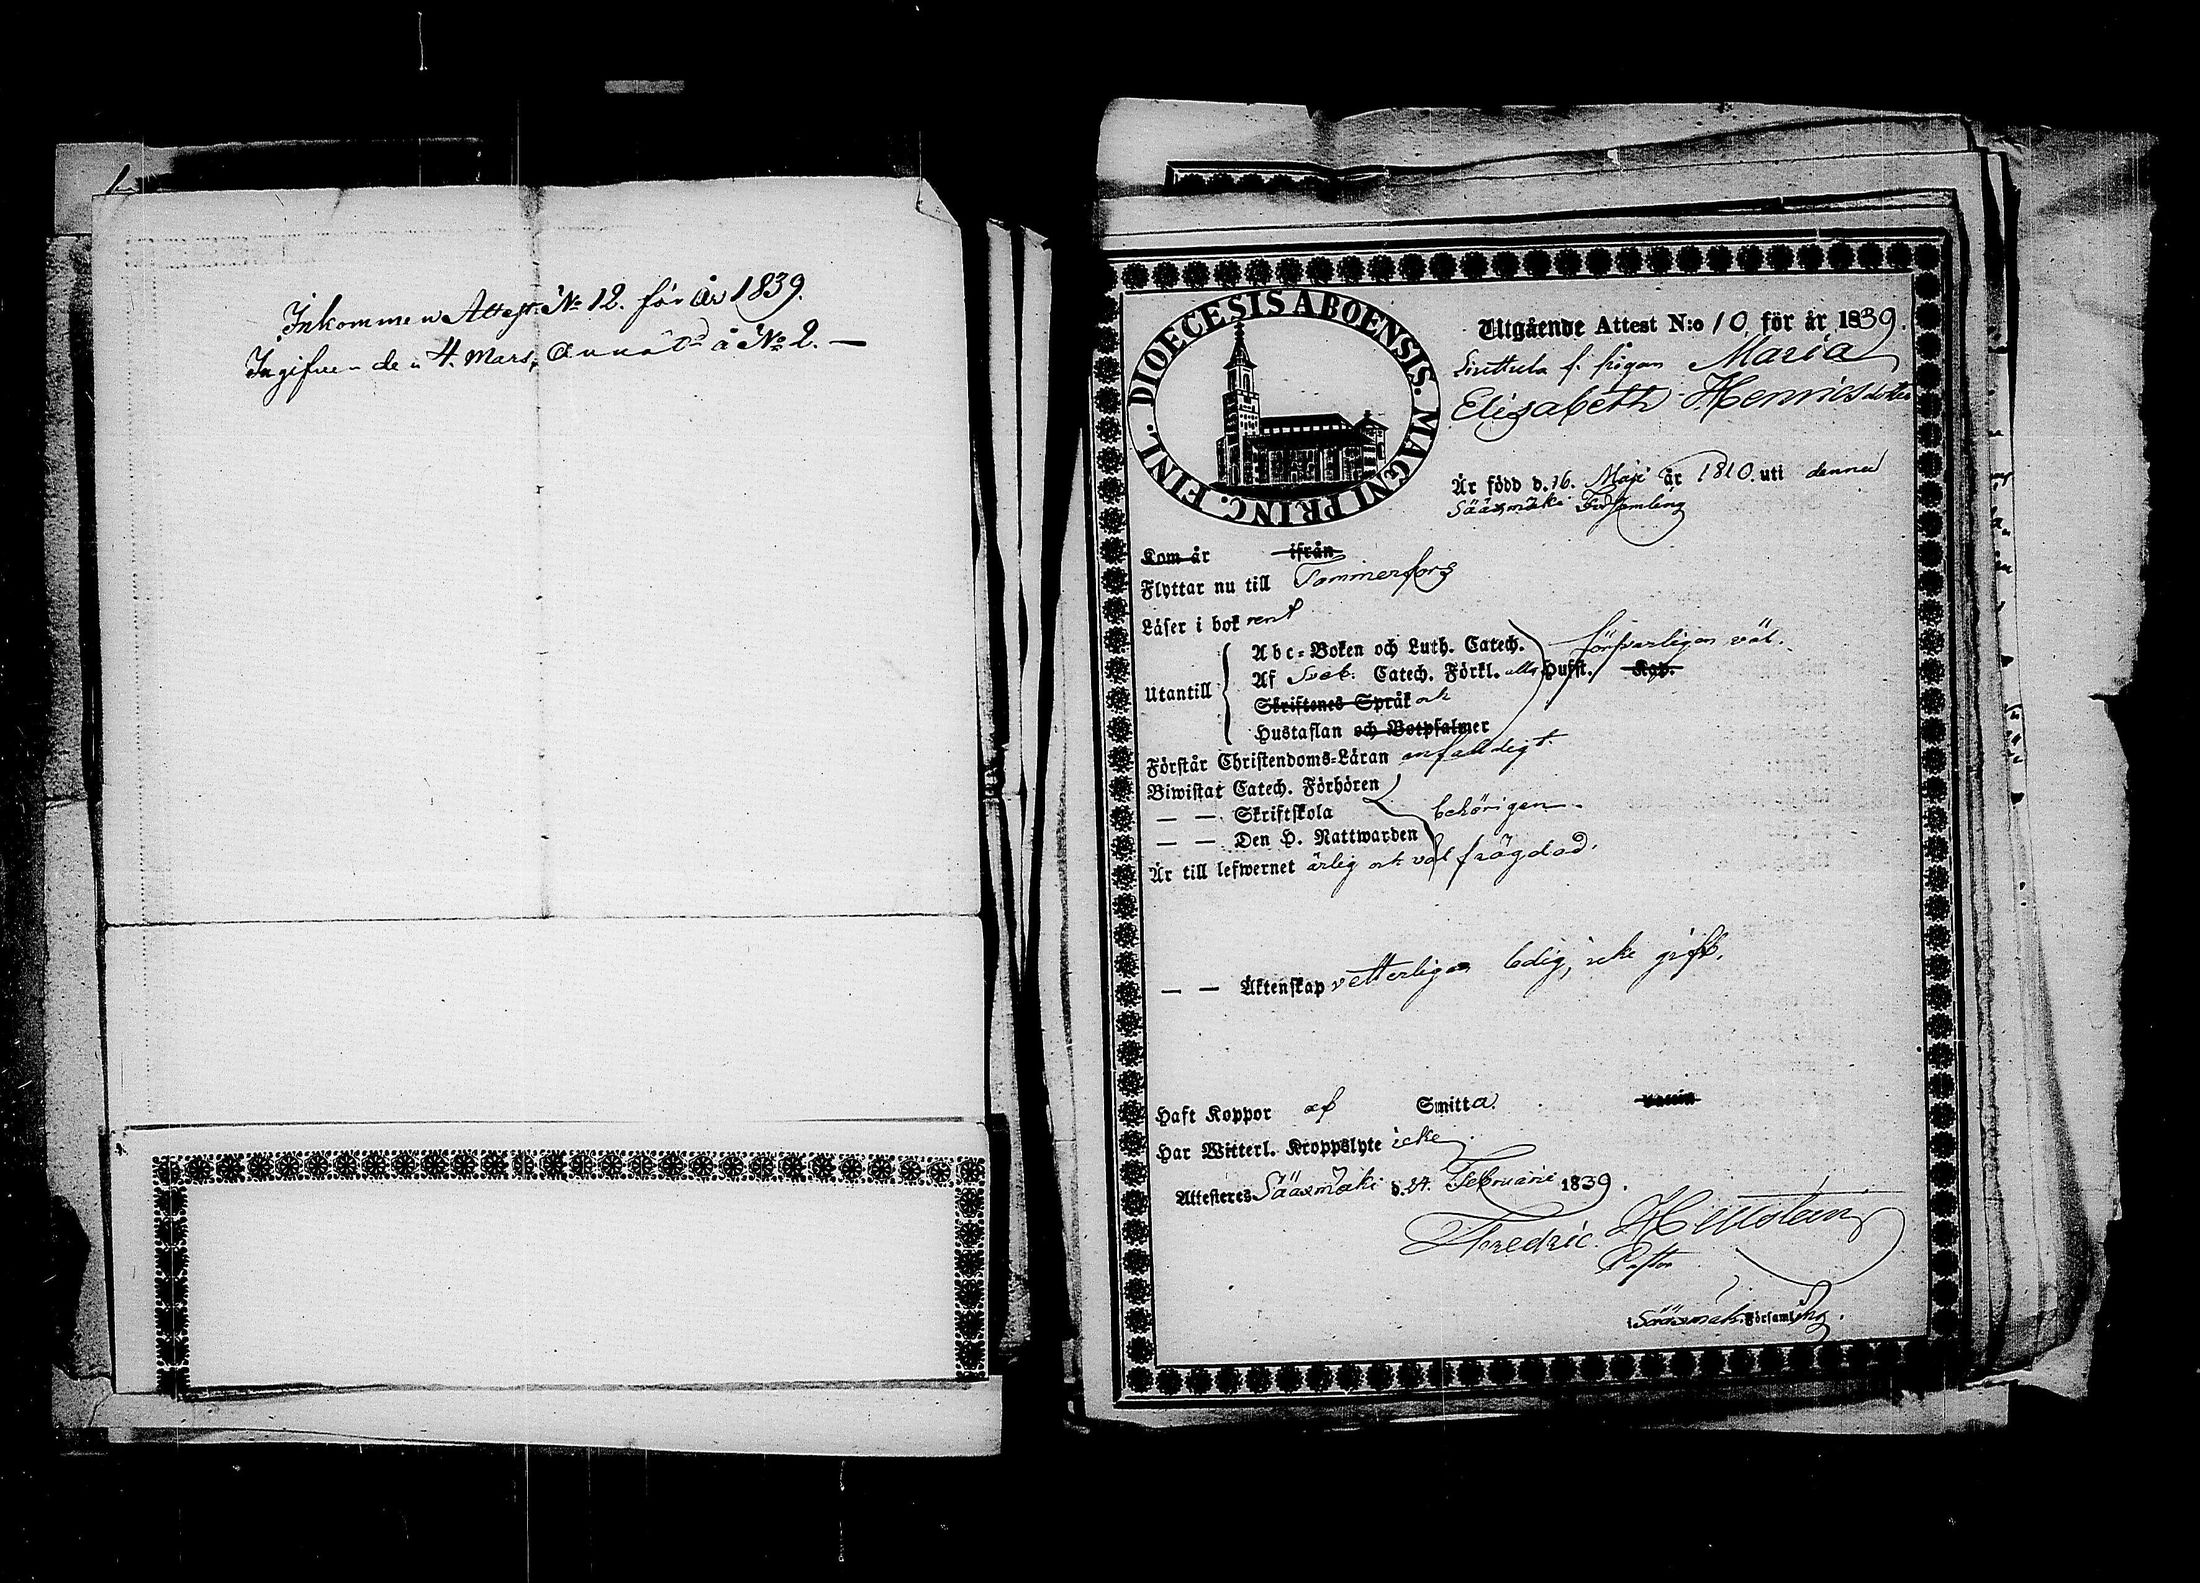 Inkommen Attest No 12. för år 1839.
Ingifven den 4. Mars, å No 2. —
DIOECESIS ABOENSIS. MAGNI PRINC. FINL.
Utgående Attest N:o 10, för år 1839.
f. pigan Maria
Elisabeth Henricsdotter
Är född d. 16. Maji år 1810. uti denna
Sääxmäki Församling
Kom år ifrån
Flyttar nu till Tammerfors
Läser i bok rent
Utantill
Abc-Boken och Luth. Catech. försvarligen väl.
Af Sveb: Catech. Förkl. alla Hufst. Kap.
Skriftenes Språk och
Hustaflan och Botpsalmer
Förstår Christendoms-Läran enfaldigt.
Biwistat Catech. Förhören
— — Skriftskola behörigen.
— — Den H. Nattwarden
Är till lefwernet ärlig och väl frägdad.
— — Äktenskap vetterligen ledig, icke gift.
Haft Koppor af Smitta. Vaccin
Har Witterl. Kroppslyte icke.
Attesteres Sääxmäki d. 24. Februarii 1839.
Fredric Hellsten
Pastor
i Sääxmäki Församling.